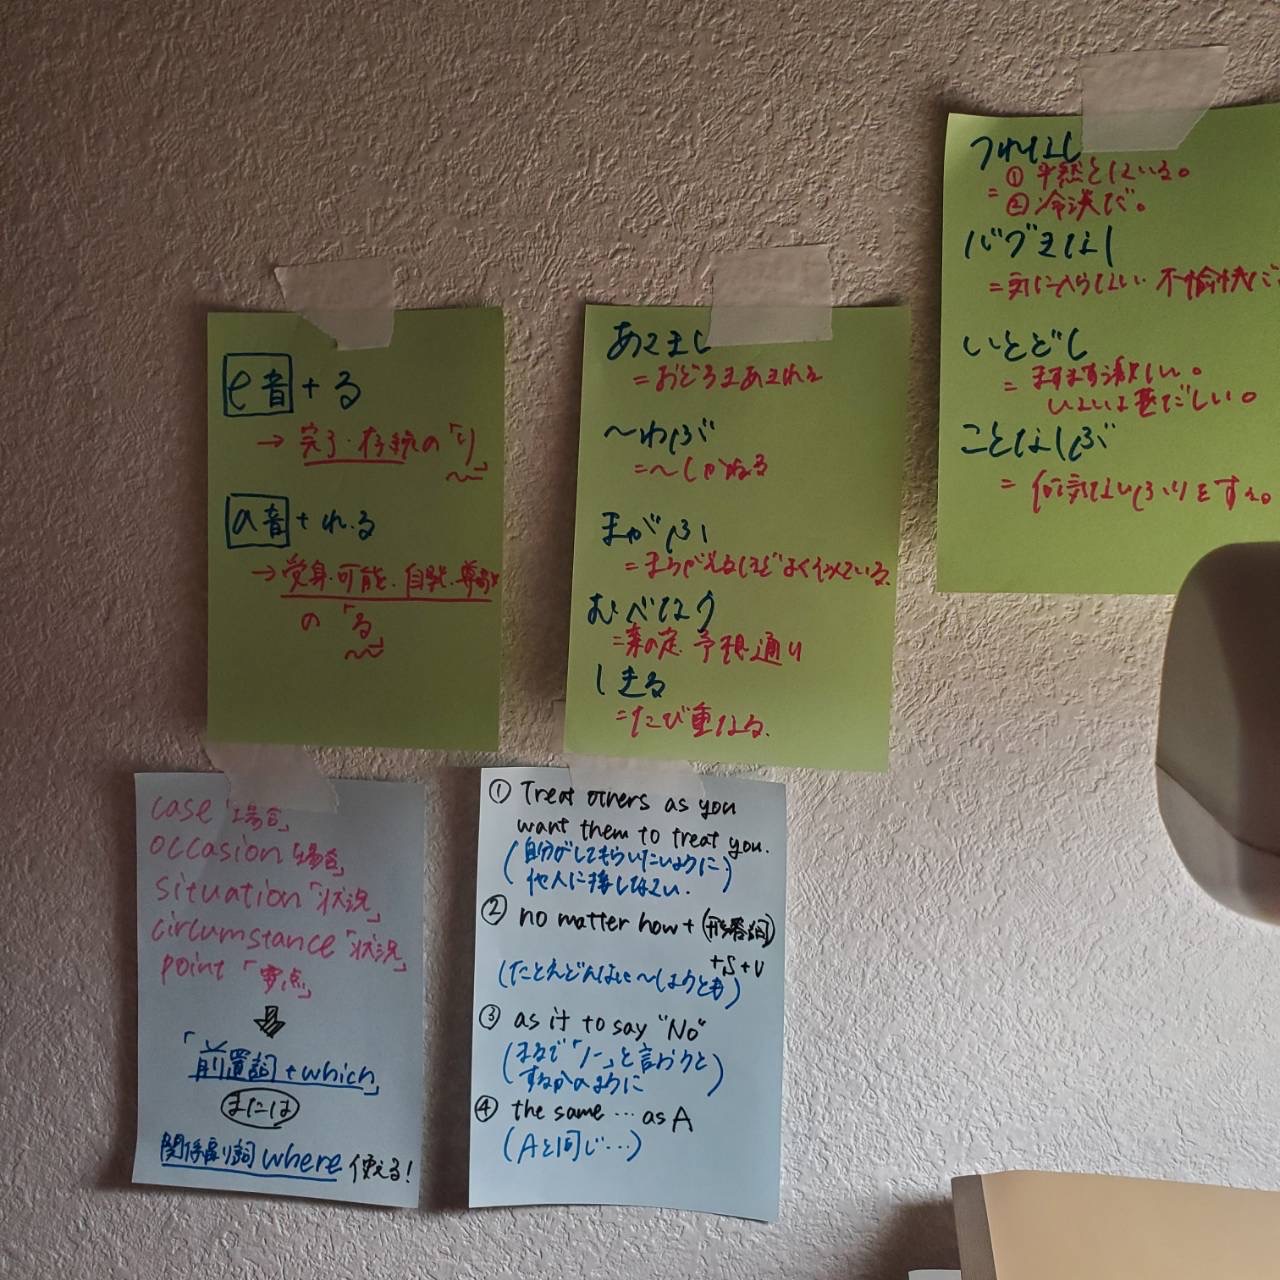 e音+る
→完了・存続の「り」
a音+れ.る
→受身.可能.自発.尊敬
の「る」
あさまし
=おどろきあきれる
〜わぶ
=〜しかねる
まがふ
=まちがえるほどよく似ている.
むべなり
=案の定.予想通り
しきる
=たび重なる.
つれなし
=①平然としている。
②冷淡だ。
=気に入らない 不愉快だ
いとどし
=ますます激しい。
いよいよ甚だしい。
ことなしぶ
=何気ないふりをする。
case「場合」
occasion「場合」
situation「状況」
circumstance「状況」
point「要点」
「前置詞+which」
または
関係副詞where使える!
① Treat others as you
want them to treat you.
(自分がしてもらいたいように
他人に接しなさい.)
② no matter how+(形容詞)
+S+V
(たとえどんなに〜しようとも)
③ as if to say "No"
(まるで「ノー」と言おうと
するかのように)
④ the same … as A
(Aと同じ…)